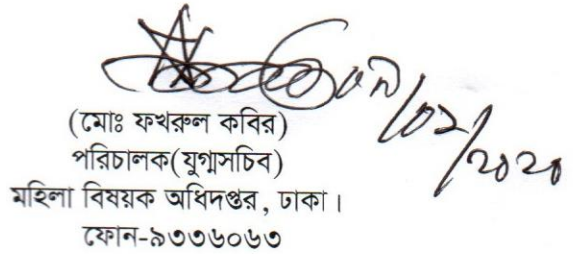 (মোঃ ফখরুল কবির)
পরিচালক(যুগ্মসচিব)
মহিলা বিষয়ক অধিদপ্তর, ঢাকা।
ফোন-৯৩৩৬০৬৩